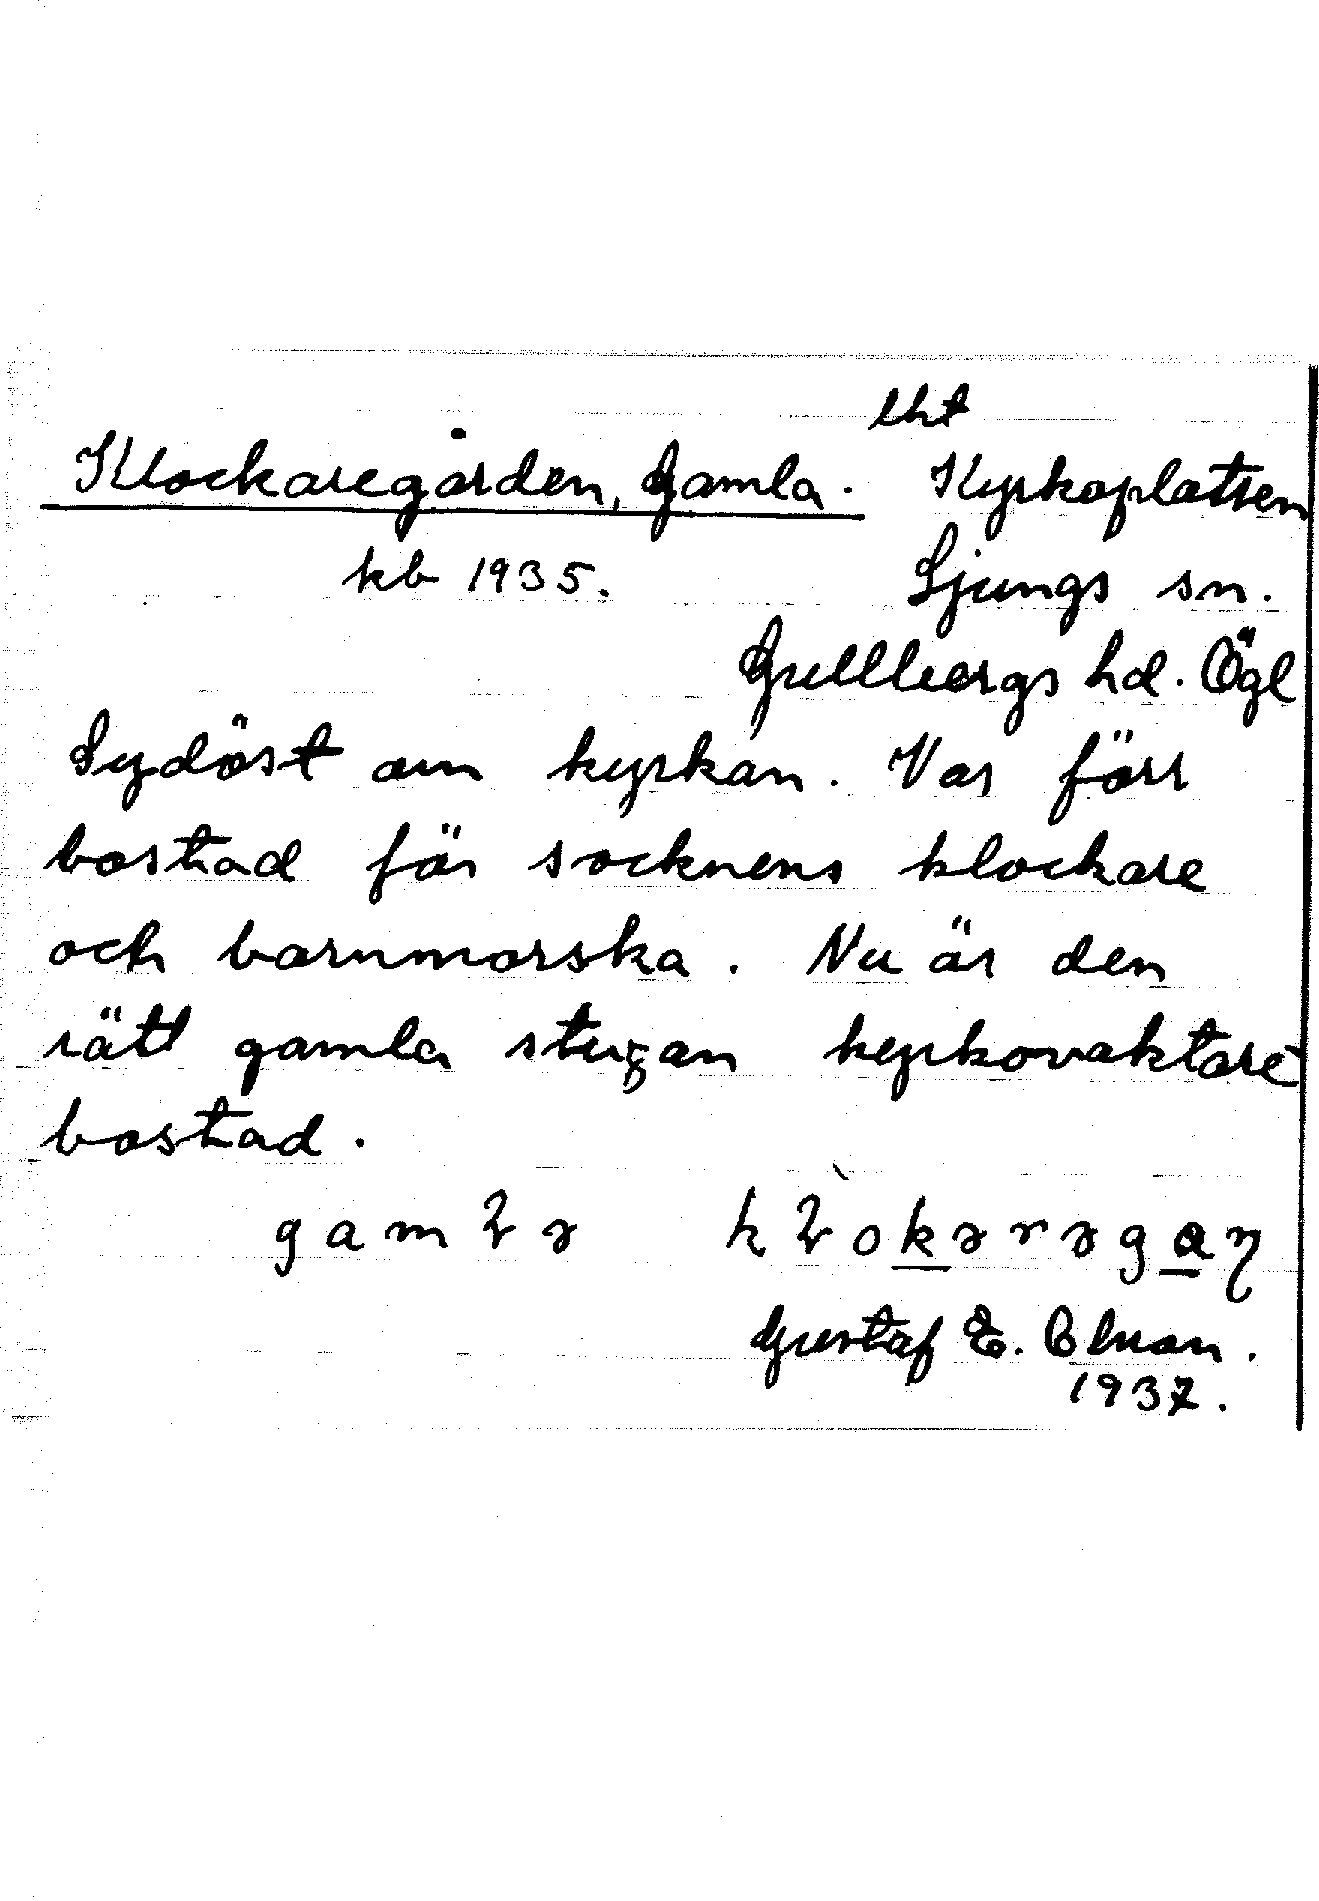 lht
Klockaregården, Gamla. Kyrkoplatsen
kb 1935. Ljungs sn.
Gullbergs hd. Ögl
Sydöst om kyrkan. Var förr
bostad för socknens klockare
och barnmorska. Nu är den
rätt gamla stugan kyrkovaktare
bostad.
Gustaf E. Clason.
1937.